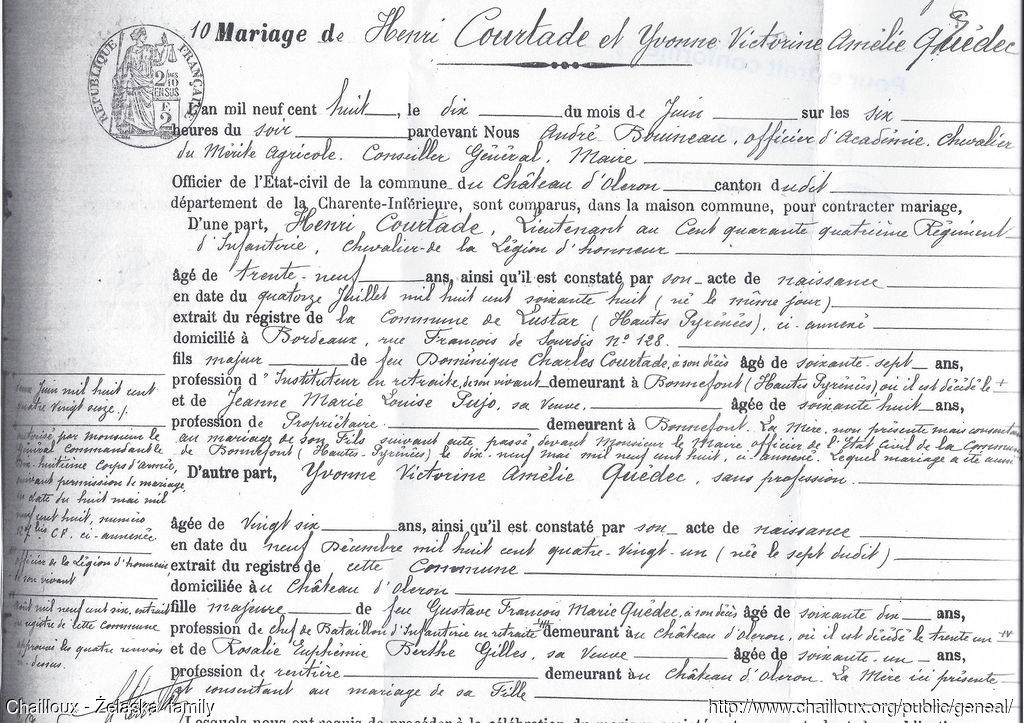 10 Mariage de Henri Courtade et Yvonne Victorine Amélie Quédec
RÉPUBLIQUE FRANÇAISE
2 10
EN SUS
L'an mil neuf cent huit, le dix du mois de Juin sur les six
heures du soir pardevant Nous André Bouineau, officier d'Académie, Chevalier
du Mérite Agricole, Conseiller Général, Maire
Officier de l'Etat-civil de la commune du Château d'Oleron canton dudit
département de la Charente-Inférieure, sont comparus, dans la maison commune, pour contracter mariage,
D'une part, Henri Courtade, Lieutenant au Cent quarante quatrième Régiment
d'Infanterie, Chevalier de la Légion d'honneur
âgé de trente-neuf ans, ainsi qu'il est constaté par son acte de naissance
en date du quatorze Juillet mil huit cent soixante huit (né le même jour)
extrait du régistre de la Commune de Lustar (Hautes Pyrénées), ci-annexé
domicilié à Bordeaux, rue François de Sourdis N° 128.
fils majeur de feu Dominique Charles Courtade, à son décès âgé de soixante-sept ans,
profession d'Instituteur en retraite, de son vivant demeurant à Bonnefont (Hautes Pyrénées) où il est décédé le +
et de Jeanne Marie Louise Pujo, sa Veuve, âgée de soixante huit ans,
profession de Propriétaire demeurant à Bonnefont. La Mère, non présente mais consentant
au mariage de son Fils suivant acte passé devant Monsieur le Maire officier de l'Etat Civil de la Commune
de Bonnefont (Hautes-Pyrénées) le dix-neuf mai mil neuf cent huit, ci annexé. Lequel mariage a été
D'autre part, Yvonne Victorine Amélie Quédec, sans profession.
âgée de Vingt six ans, ainsi qu'il est constaté par son acte de naissance
en date du neuf Décembre mil huit cent quatre-vingt-un (née le sept dudit)
extrait du registre de cette Commune
domiciliée au Château d'Oleron
fille majeure de feu Gustave François Marie Quédec, à son décès âgé de soixante dix ans,
profession de chef de Bataillon d'Infanterie en retraite demeurant au Château d'Oleron, où il est décédé le trente un
et de Rosalie Euphémie Berthe Gilles, sa Veuve âgée de soixante-un ans,
profession de rentière demeurant au Château d'Oleron. La Mère ici présente
et consentant au mariage de sa Fille
Juin mil huit cent
quatre vingt onze
autorisé par monsieur le
Général Commandant le
Dix-huitième corps d'armée,
suivant permission de mariage
en date du huit mai mil
neuf cent huit, numéro
ci-annexée
officier de la Légion d'honneur
de son vivant
août mil neuf cent six, extrait
du registre de cette Commune
approuvés les quatre renvois
ci-dessus.
Lesquels nous ont requis de procéder à la célébration du mariage
Chailloux - Żelaska family
http://www.chailloux.org/public/geneal/